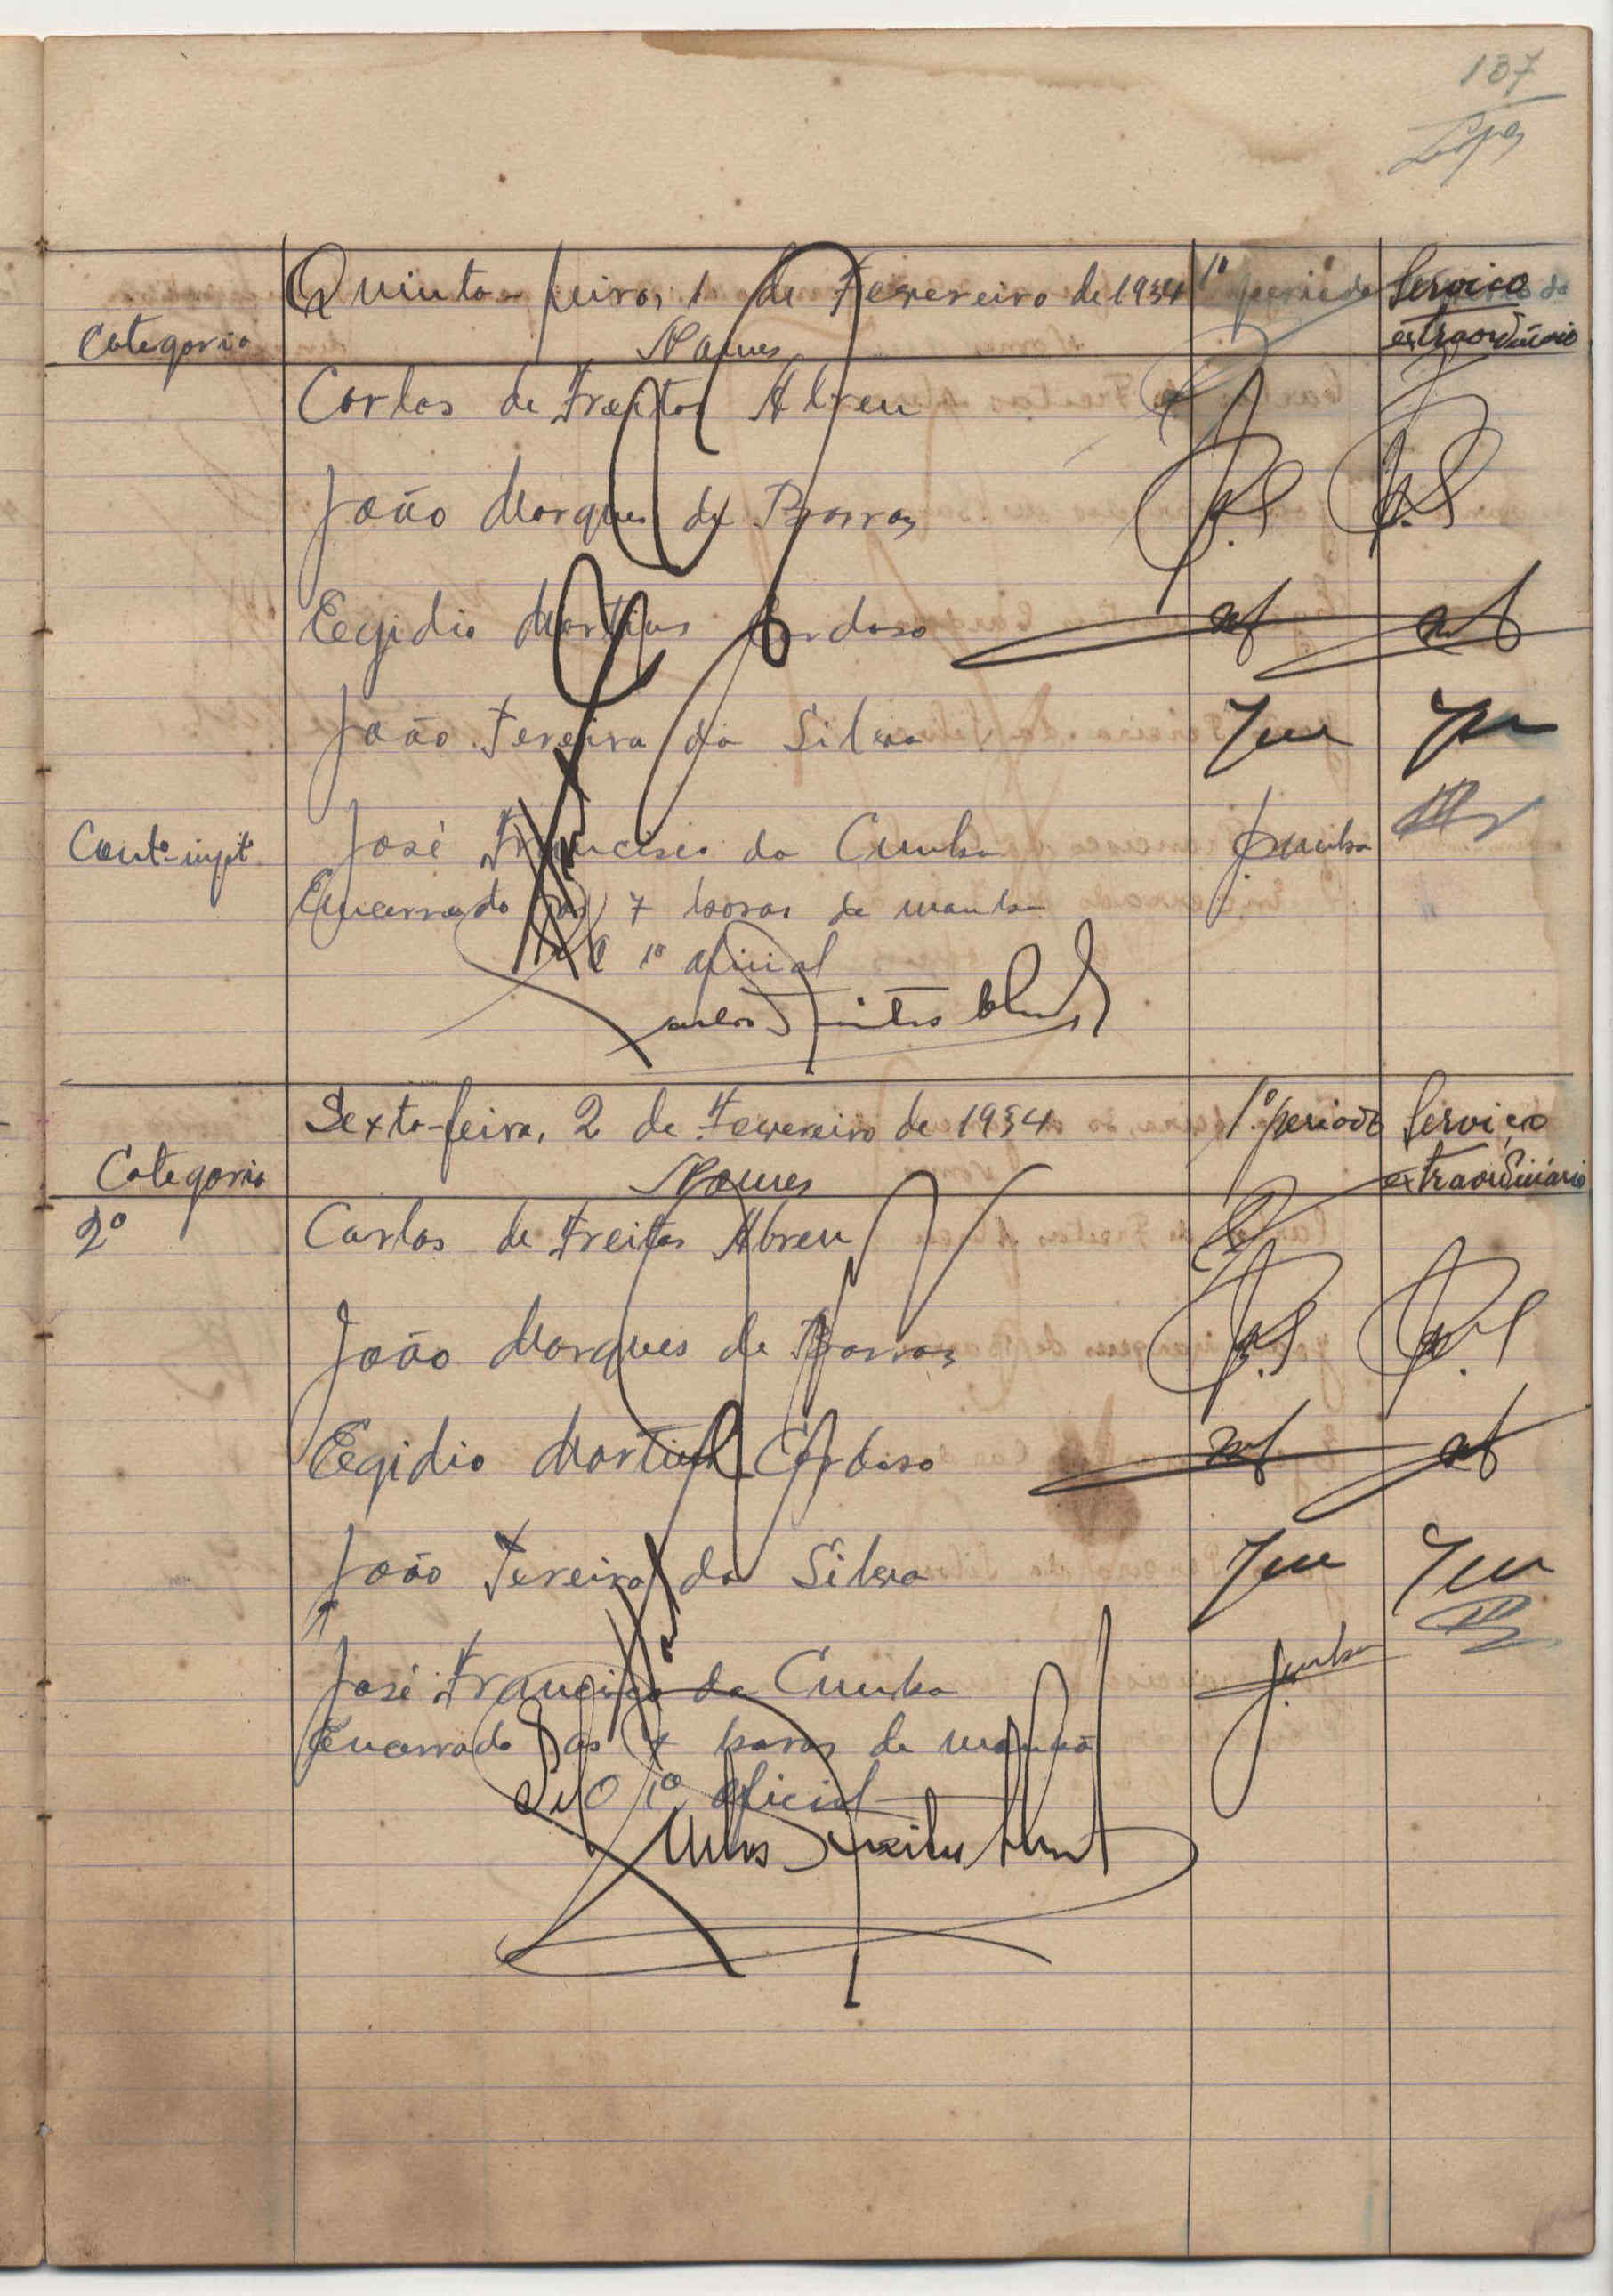 137
Lopes
Quinta-feira, 1 de Fevereiro de 1934 1º periodo Serviço
Categoria Nomes extraordinário
Carlos de Freitas Abreu
João Marques de Barros
Egidio Martins Cardoso
João Pereira da Silva
José Francisco da Cunha JCunha
Encerrado as 7 horas da manhã
O 1º oficial
Carlos Freitas Abreu
Sexta-feira, 2 de Fevereiro de 1934 1º periodo Serviço
Categoria Nomes extraordinário
2º Carlos de Freitas Abreu
João Marques de Barros
Egidio Martins Cardoso
João Pereira da Silva
José Francisco da Cunha JCunha
Encerrado as 7 horas da manhã
O 1º oficial
Carlos Freitas Abreu